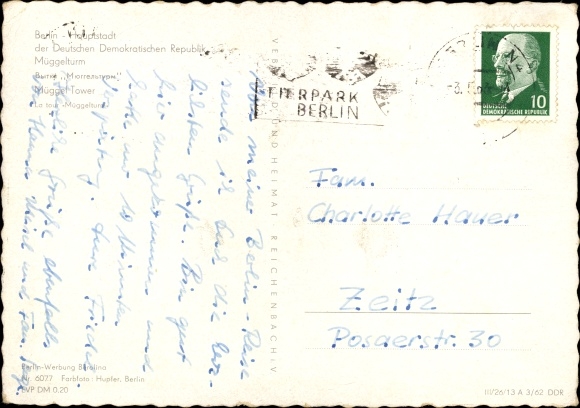 Berlin - Hauptstadt
der Deutschen Demokratischen Republik
Müggelturm
Müggel Tower
La tour «Müggelturm»
VERLAG BILD UND HEIMAT REICHENBACH i. V.
TIERPARK
BERLIN
10
DEUTSCHE
DEMOKRATISCHE REPUBLIK
Von meiner Berlin-Reise
sende ich Euch die herz-
lichsten Grüße. Bin gut
hier angekommen und
hatte nur 10 Minuten
Verspätung.
Herzliche Grüße ebenfalls
und Fam.
Fam.
Charlotte Hauer
Zeitz
Posaerstr. 30
Berlin-Werbung Berolina
Nr. 6077 Farbfoto: Hupfer, Berlin
EVP DM 0,20
III/26/13 A 3/62 DDR